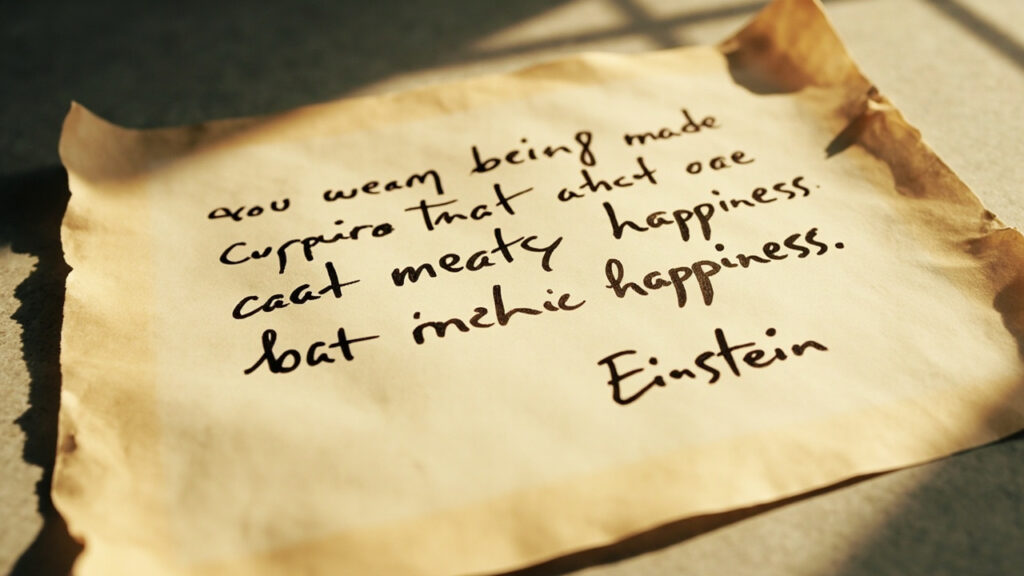 you weam being made
curpiro Tnat ahct oae
caat meaty happiness.
bat inchic happiness.
Einstein